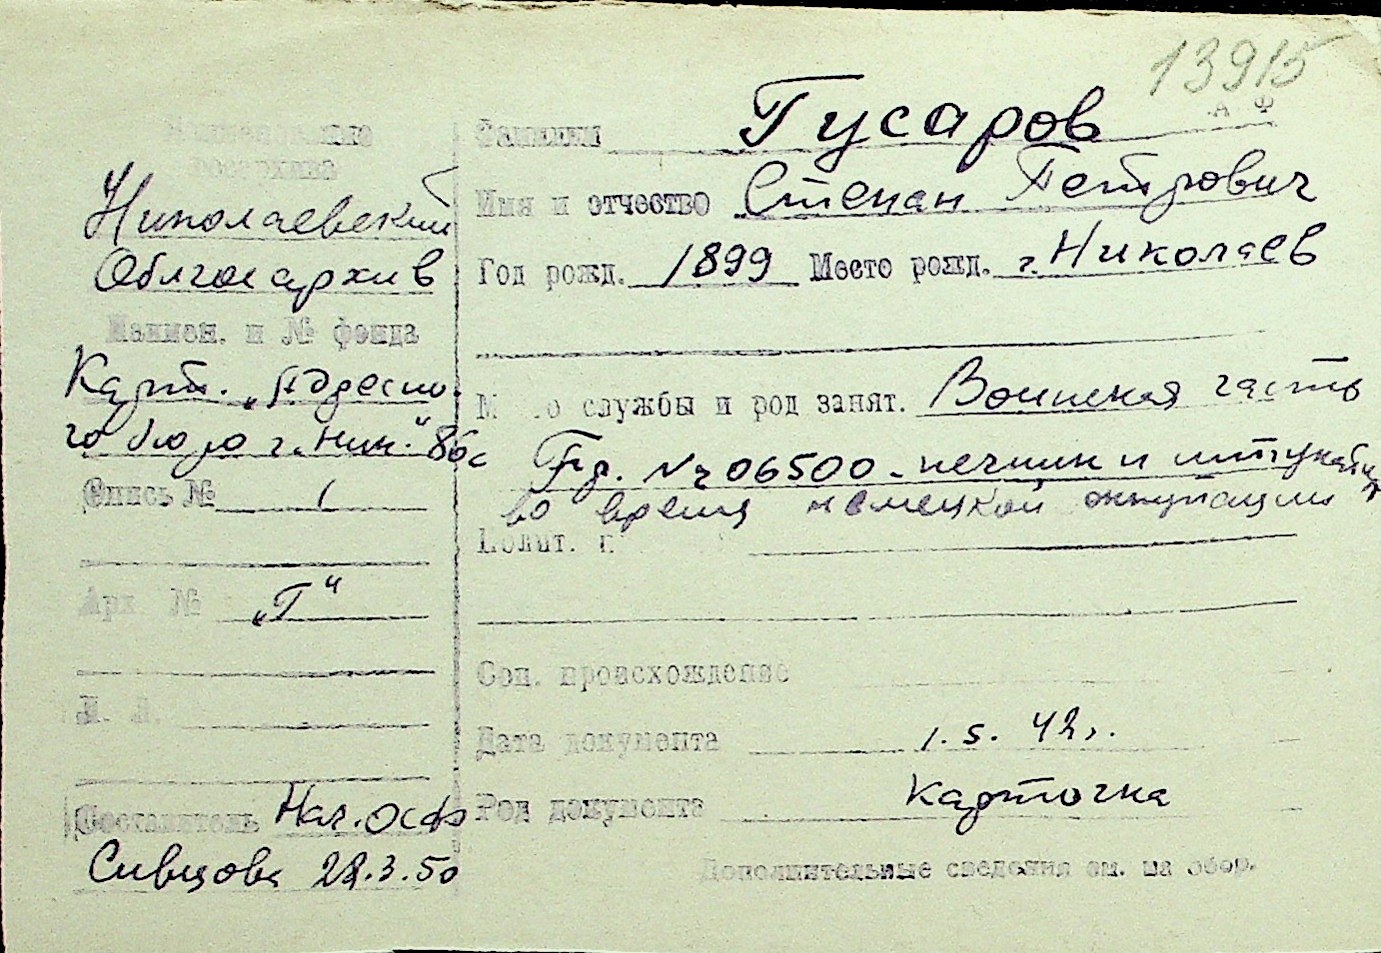 13915
А Ф
Наименование
госархива
Николаевский
Облгосархив
Наимен. и № фонда
Карт. „Адресно-
го бюро г. Ник." 86с
Опись № 1
Арх. № „Г"
Составитель Нач. ОСФ
Сивцова 28.3.50
Фамилия Гусаров
Имя и отчество Степан Петрович
Год рожд. 1899 Место рожд. г. Николаев
М о службы и род занят. Воинская часть
№ 06500 - печник и штукатур
во время немецкой оккупации
Соц. происхождение
Дата документа 1.5.42г.
Род документа карточка
Дополнительные сведения см. на обор.